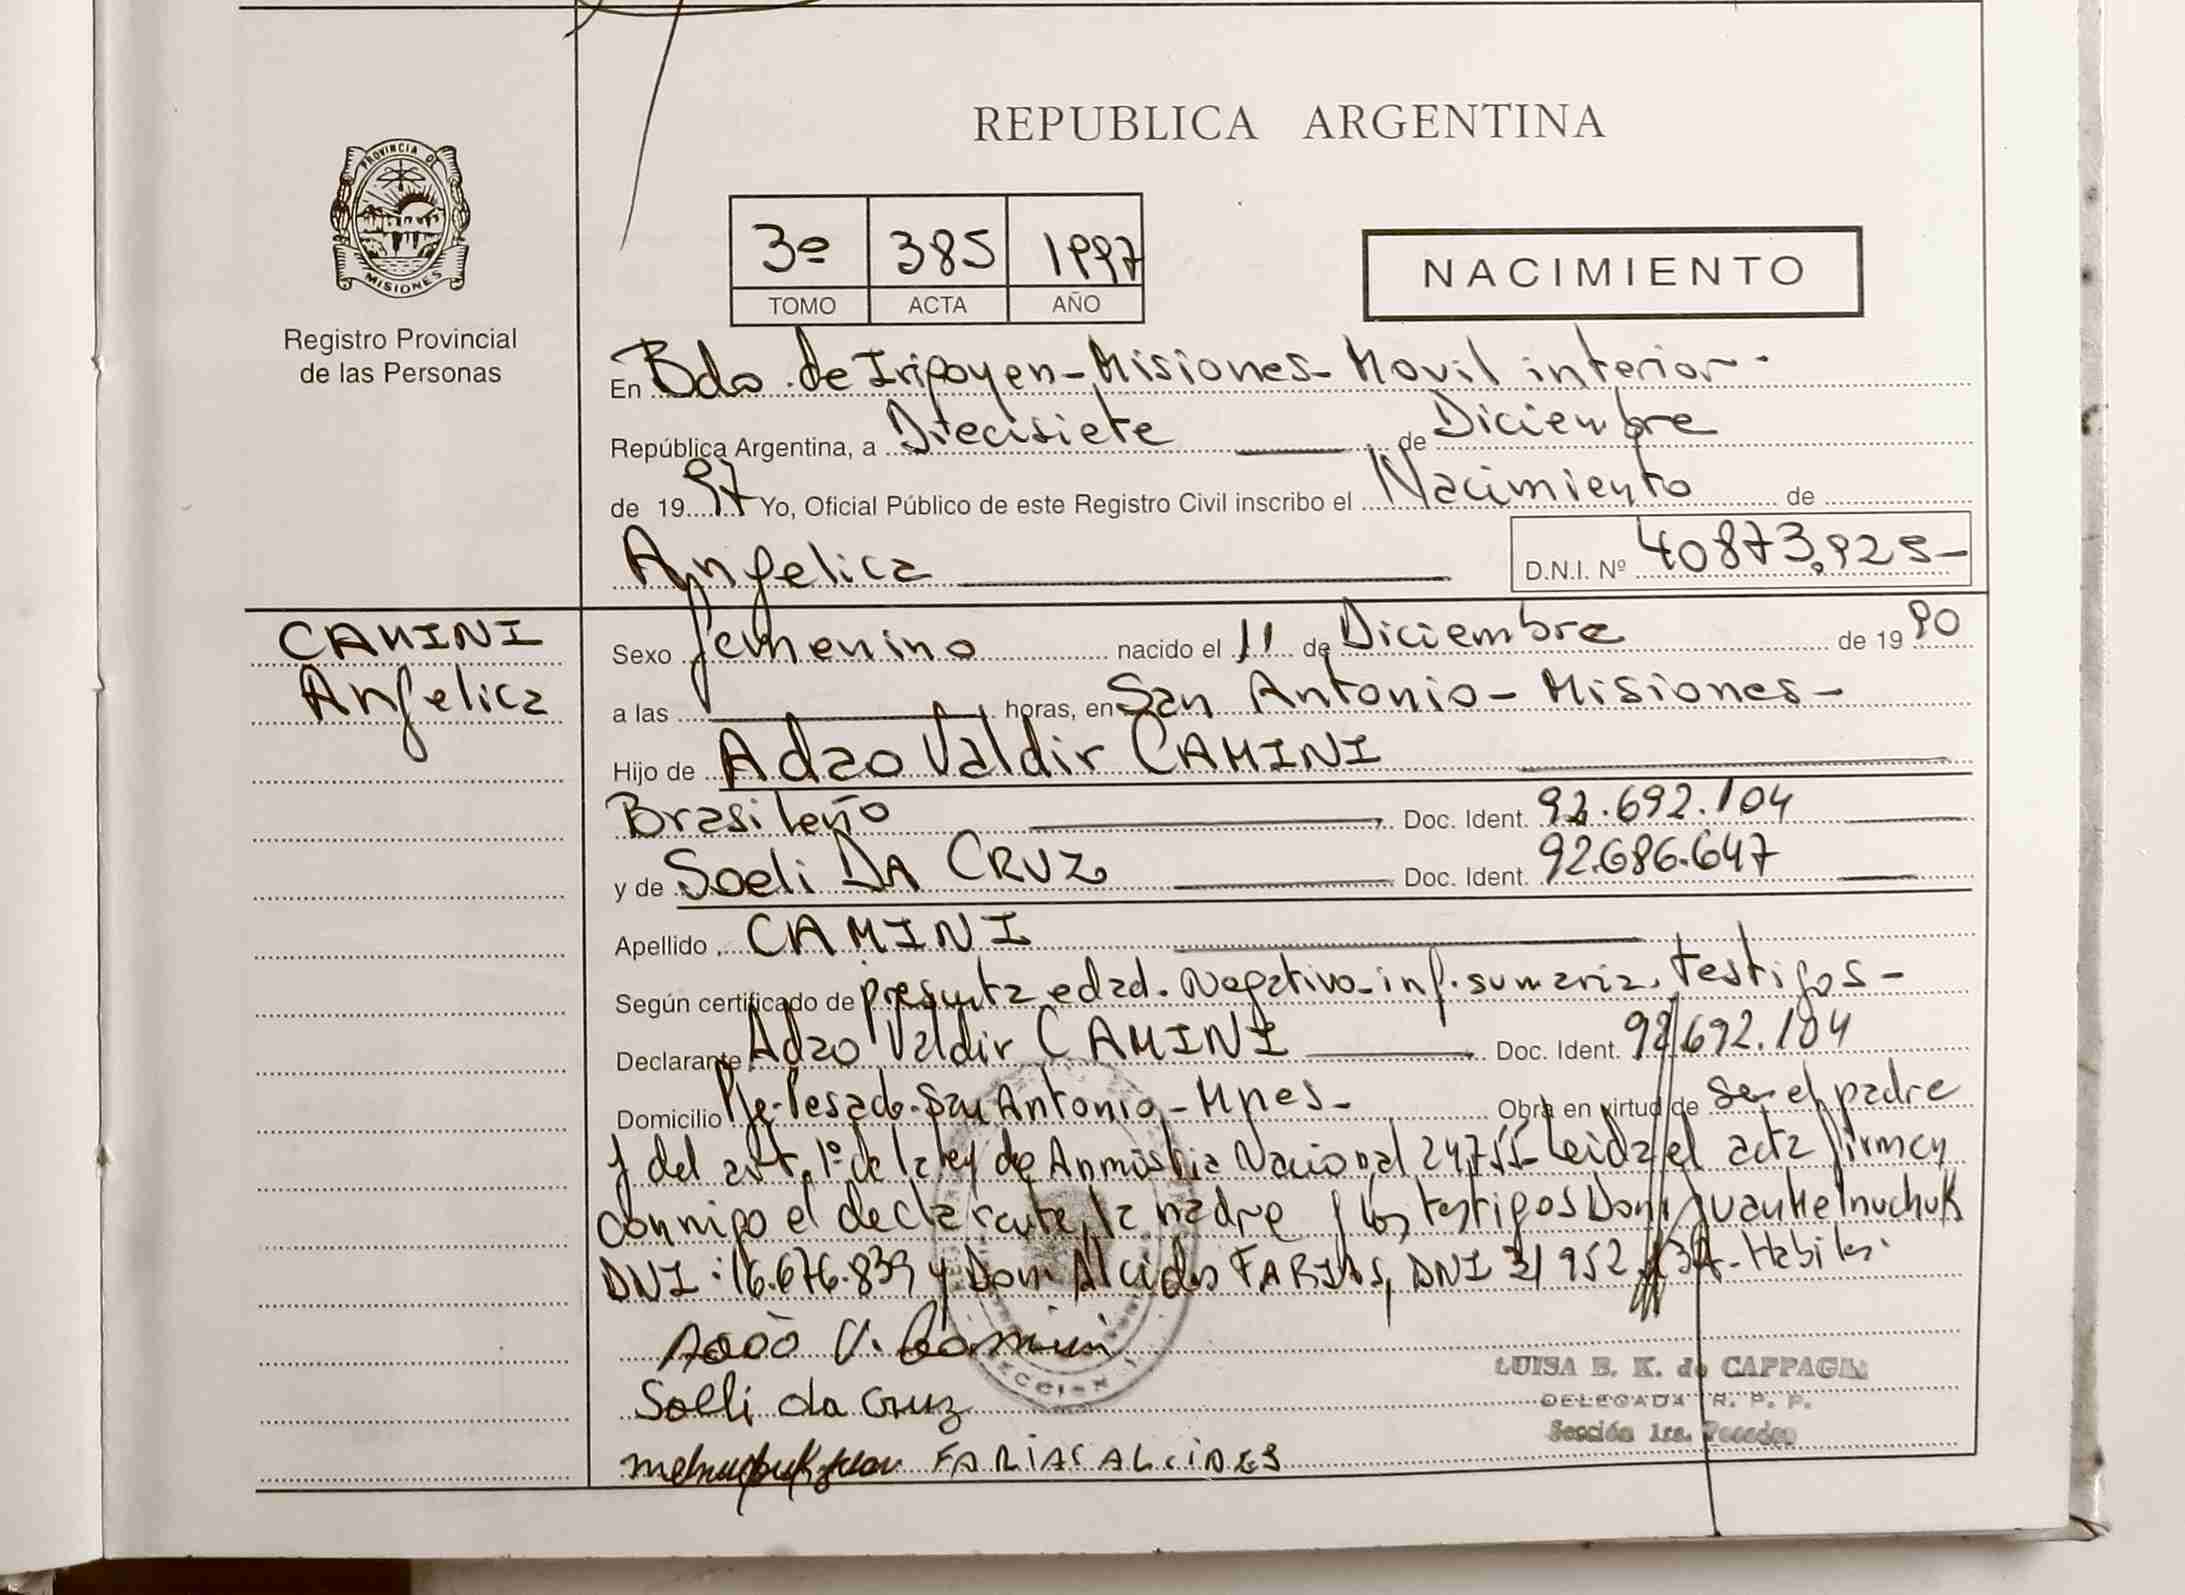 REPUBLICA ARGENTINA
PROVINCIA DE
MISIONES
Registro Provincial
de las Personas
3º 385 1997
TOMO ACTA AÑO
NACIMIENTO
En Bdo. de Irigoyen - Misiones - Movil interior -
República Argentina, a Diecisiete de Diciembre
de 1997 Yo, Oficial Público de este Registro Civil inscribo el Nacimiento de
Angelica D.N.I. Nº 40873.925-
CAMINI
Angelica
Sexo femenino nacido el 11 de Diciembre de 1990
a las horas, en San Antonio - Misiones -
Hijo de Adao Valdir CAMINI
Brasileño Doc. Ident. 92.692.104
y de Soeli DA CRUZ Doc. Ident. 92.686.647
Apellido CAMINI
Según certificado de presunta edad. Negativo - inf. sumaria, testigos -
Declarante Adao Valdir CAMINI Doc. Ident. 92.692.104
Domicilio Pje. Pesado - San Antonio - Mnes - Obra en virtud de ser el padre
y del art. 1º de la ley de Anmistia Nacional 24.755 - Leida el acta firman
conmigo el declarante, la madre y los testigos Don Juan Melnuchuk
DNI: 16.676.839 y Don Alcides FARIAS, DNI - Habiles.
Adaò V. Camini
Soeli da Cruz
Melnuchuk Juan FARIAS ALCIDES
LUISA B. K. de CAPPAGLI
DELEGADA R. P. P.
Sección 1ra. Posadas